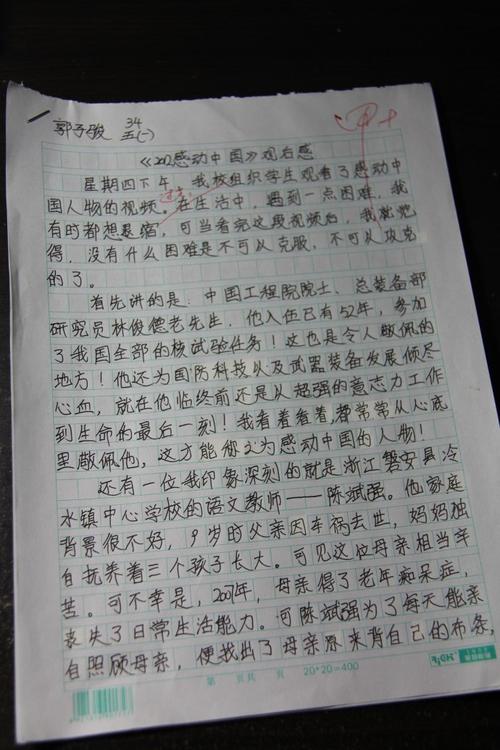 郭子骏 34
五(一)
《2012感动中国》观后感
星期四下午,我校组织学生观看了感动中
国人物的视频。在生活中,遇到一点困难,我
有时都想退缩,可当看完这段视频后,我就觉
得,没有什么困难是不可以克服,不可以攻克
的了。
首先讲的是,中国工程院院士、总装备部
研究员林俊德老先生,他入伍已有52年,参加
了我国全部的核试验任务!这也是令人敬佩的
地方!他还为国防科技以及武器装备发展倾尽
心血,就在他临终前还是以超强的意志力工作
到生命的最后一刻!我看着看着,都常常从心底
里敬佩他,这才能称之为感动中国的人物!
还有一位我印象深刻的就是浙江磐安县冷
水镇中心学校的语文教师——陈斌强。他家庭
背景很不好,9岁时父亲因车祸去世,妈妈独
自抚养着三个孩子长大。可见这位母亲相当辛
苦。可不幸是,2007年,母亲得了老年痴呆症,
丧失了日常生活能力。可陈斌强为了每天能亲
自照顾母亲,便找出了母亲原来背自己的布条,
第 页共 页 20*20=400